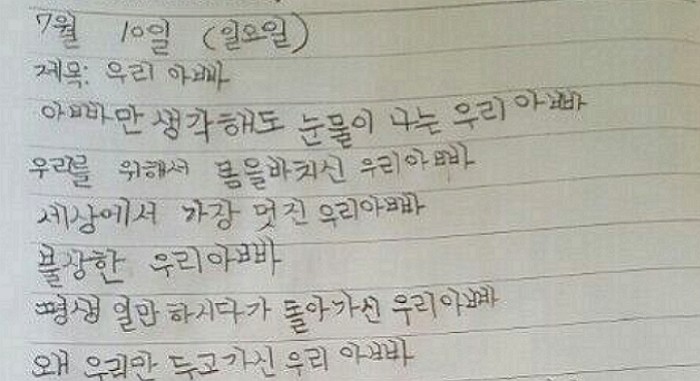 7월 10일 (일요일)
제목: 우리 아빠
아빠만 생각해도 눈물이 나는 우리 아빠
우리를 위해서 몸을바치신 우리아빠
세상에서 가장 멋진 우리아빠
불상한 우리아빠
평생 일만 하시다가 돌아가신 우리아빠
왜 우리만 두고가신 우리 아빠